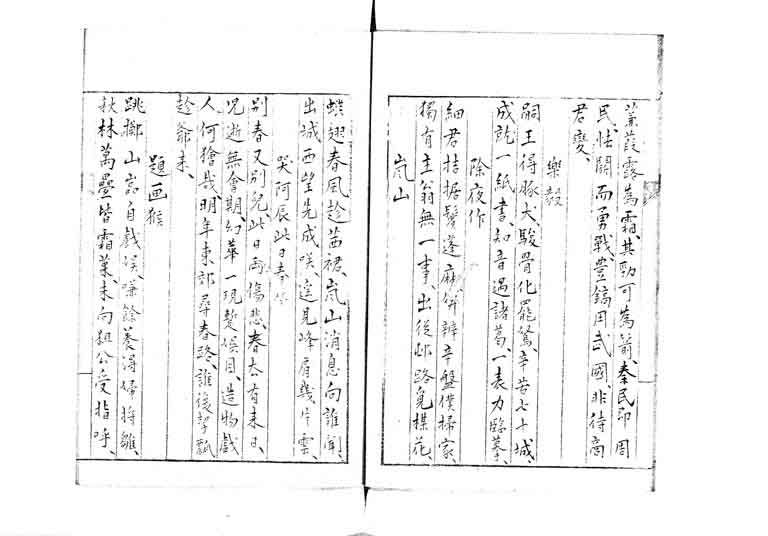 蒹葭露為霜、其勁可為箭、秦民即周
民、怯鬪而勇戰、豊鎬用武國、非待商
君變、
樂毅
嗣王得豚犬、駿骨化罷駑、辛苦七十城、
成就一紙書、知音遇諸葛、一表力臨摹、
除夜作
細君拮据鬢蓬麻、併辨辛盤僕掃家、
獨有主翁無一事、出從邨路覓楳花、
嵐山
蝶翅春風趁茜裙、嵐山消息向誰聞、
出城西望先成咲、逢見峰肩幾片雲、
哭阿辰此日春尽
別春又別兒、此日両傷悲、春去有来日、
児逝無會期、幻華一現暫娯目、造物戲
人何獪哉、明年東郊尋春路、誰復挈瓢
趁爺来、
題画猴
跳擲山嵓自戲娯、嗛餘養得婦将雛、
秋林萬疊皆霜菓、未向狙公受指呼、